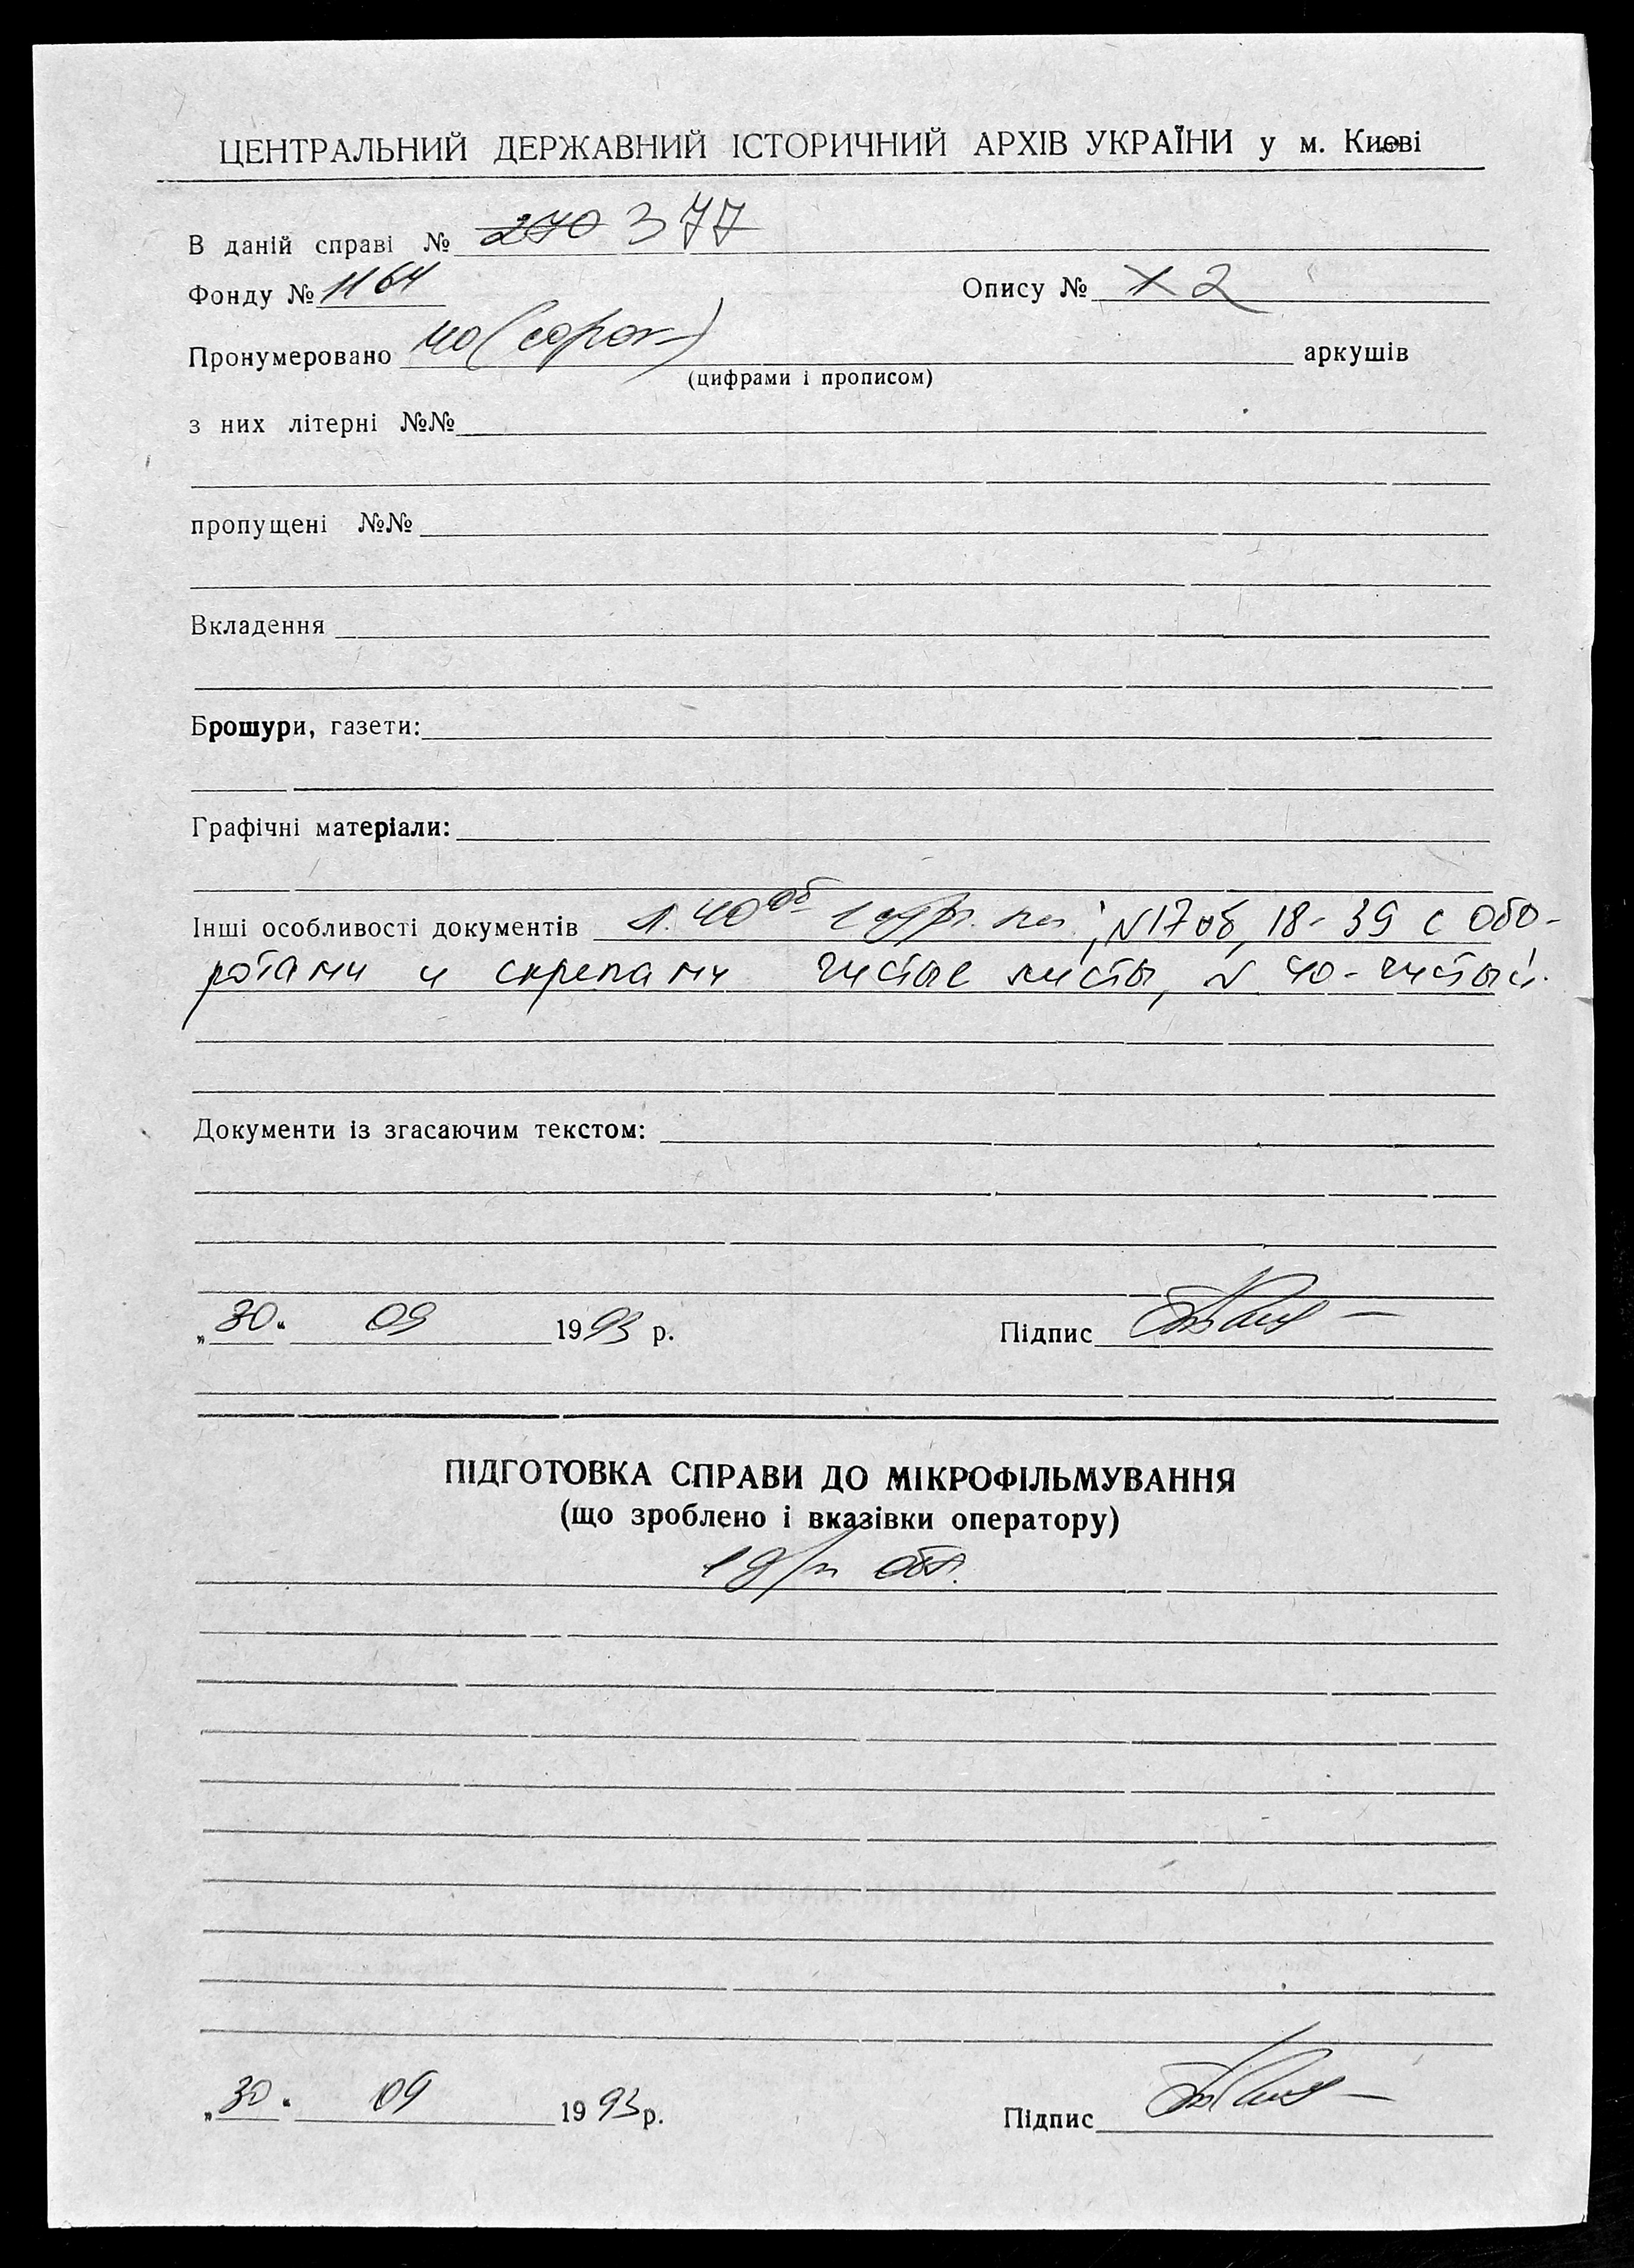 ЦЕНТРАЛЬНИЙ ДЕРЖАВНИЙ ІСТОРИЧНИЙ АРХІВ УКРАЇНИ у м. Києві
В даній справі № 270 377
Фонду № 1164 Опису № 2
Пронумеровано 40 (сорок) аркушів
(цифрами і прописом)
з них літерні №№
пропущені №№
Вкладення
Брошури, газети:
Графічні матеріали:
Інші особливості документів л. 40 об ; N17 об, 18-39 с обо-
ротами и скрепами чистые листы, N 40 - чистый.
Документи із згасаючим текстом:
„30“ 09 1993 р. Підпис
ПІДГОТОВКА СПРАВИ ДО МІКРОФІЛЬМУВАННЯ
(що зроблено і вказівки оператору)
„30“ 09 1993 р. Підпис